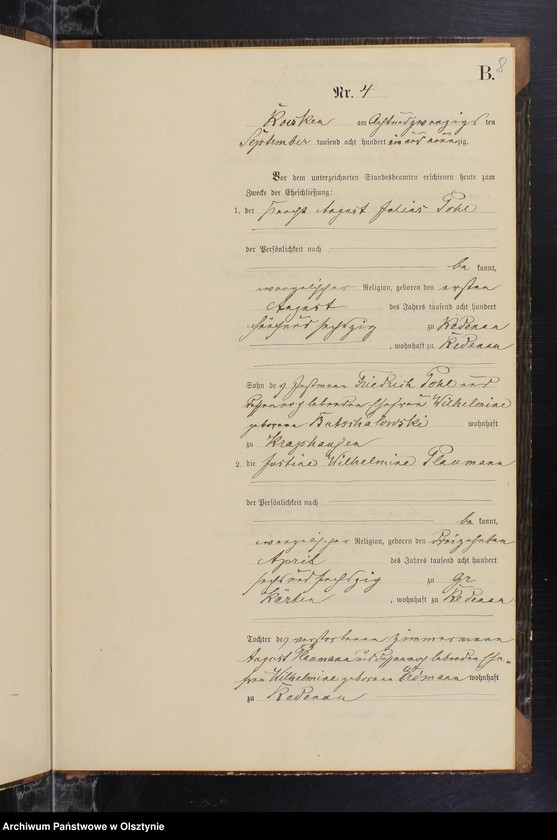 B.
8
Nr. 4
Kowsken am Achtundzwanzigs ten
September tausend acht hundert ein und neunzig.
Vor dem unterzeichneten Standesbeamten erschienen heute zum
Zwecke der Eheschließung:
1. der Knecht August Julius Pohl
der Persönlichkeit nach
be kannt,
evangelischer Religion, geboren den ersten
August des Jahres tausend acht hundert
fünf und sechszig zu Redenau
, wohnhaft zu Redenau
Sohn des Friedrich Pohl und
lebenden Ehefrau Wilhelmine
geborenen wohnhaft
zu Kraphausen
2. die Justine Wilhelmine Plaumann
der Persönlichkeit nach
be kannt,
evangelischer Religion, geboren den Dreizehnten
April des Jahres tausend acht hundert
sechs und sechszig zu Gr
Kärten , wohnhaft zu Redenau
Tochter des verstorbenen Zimmermann
August Plaumann und lebenden Ehe-
frau Wilhelmine geborenen Erdmann wohnhaft
zu Redenau
Archiwum Państwowe w Olsztynie